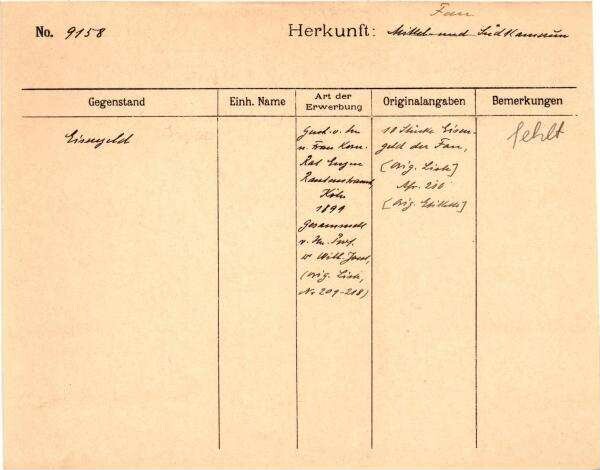 Fan
No. 9158 Herkunft: Mittel- und Süd Kamerun
Gegenstand
Einh. Name
Art der
Erwerbung
Originalangaben
Bemerkungen
Eisengeld
Gesch. v. Hn
u. Frau Kom.
Rat Eugen
Rautenstrauch,
Köln
1899
Gesammelt
v. Hn. Prof.
Dr Wilh. Joest,
(Orig. Liste,
No 209-218)
10 Stücke Eisen-
geld der Fan,
[Orig. Liste]
Afr. 210
[Orig. Etikette]
fehlt